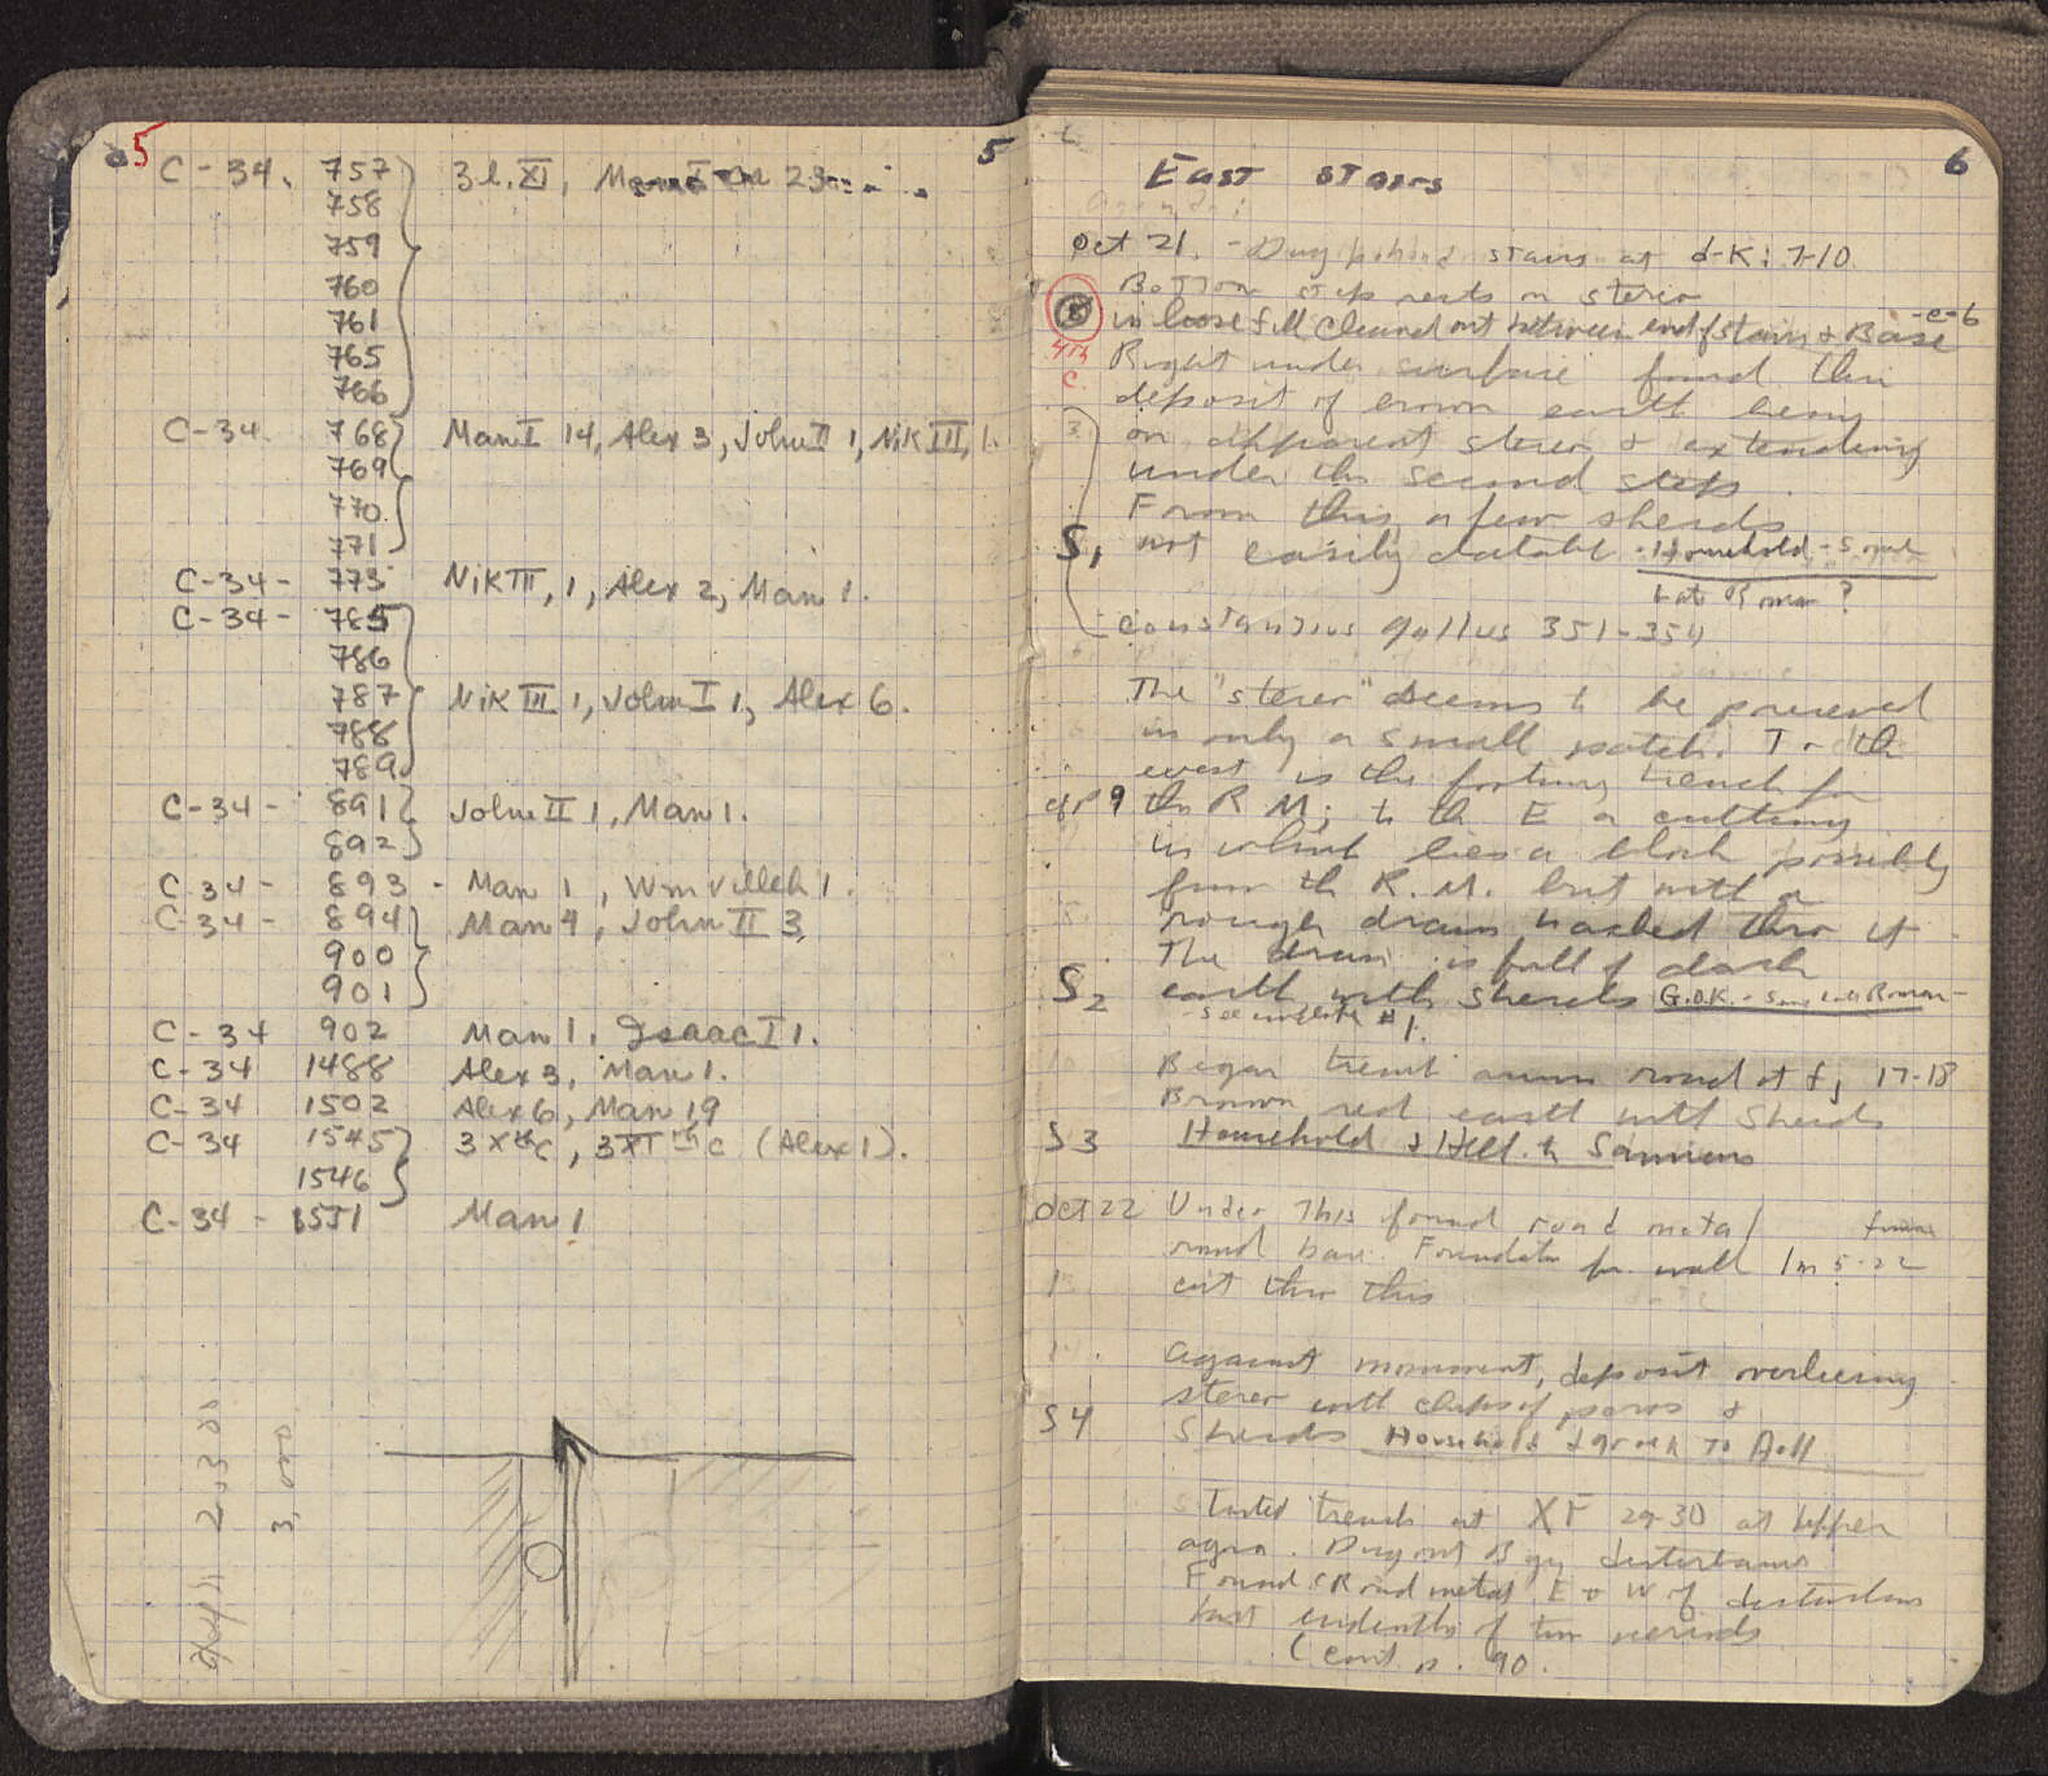 5 5
C-34. 757 3 l. XI, Man I
758
759
760
761
765
766
C-34. 768 Man I 14, Alex 3, John II 1, NiK III, 1.
769
770
771
C-34- 773 NiK III, 1, Alex 2, Man 1.
C-34- 785
786
787 NiK III 1, John I 1, Alex 6.
788
789
C-34- 891 John II 1, Man 1.
892
C-34- 893 - Man 1, Wm Villeh 1.
C-34- 894 Man 4, John II 3,
900
901
C-34 902 Man 1. Isaac I 1.
C-34 1488 Alex 3, Man 1.
C-34 1502 Alex 6, Man 19
C-34 1545 3 Xth c, 3 XI th c (Alex 1).
1546
C-34 - 1551 Man 1
2,300
3,000
6
East stairs
Oct 21. - Dug behind stairs at d-K: 7-10.
Bottom step rests on stereo
-e-6
8 in loose fill cleared out between end of stairs & Base
4th Right under surface found thin
c. deposit of brown earth lying
3 on apparent stereo & extending
under the second step.
From this, a few sherds
S1 not easily datable. Household
Late Roman?
- constantius gallus 351-354
The "stereo" seems to be preserved
in only a small patch. To the
west is the footing trench for
cf P 9 the R M; to the E a cutting
in which lies a block possibly
from the R. M. but with a
rough drain hacked thro it
The drain is full of dark
S2 earth with sherds G.O.K. - Some Late Roman -
#1.
Began trench around round at f, 17-18
Brown red earth with Sherds
S3 Household & Hell. to Samians
Oct 22 Under This found road metal
round base. Foundation for wall 1m 5-22
cut thro this
against monument, deposit overlying
stereo with chips of poros &
S4 Sherds Household & greek to Hell
Started trench at XF 29-30 at upper
agora. Dug out Byz disturbance
Found Road metal E & W of disturbance
but evidently of two periods
(Cont p. 90.